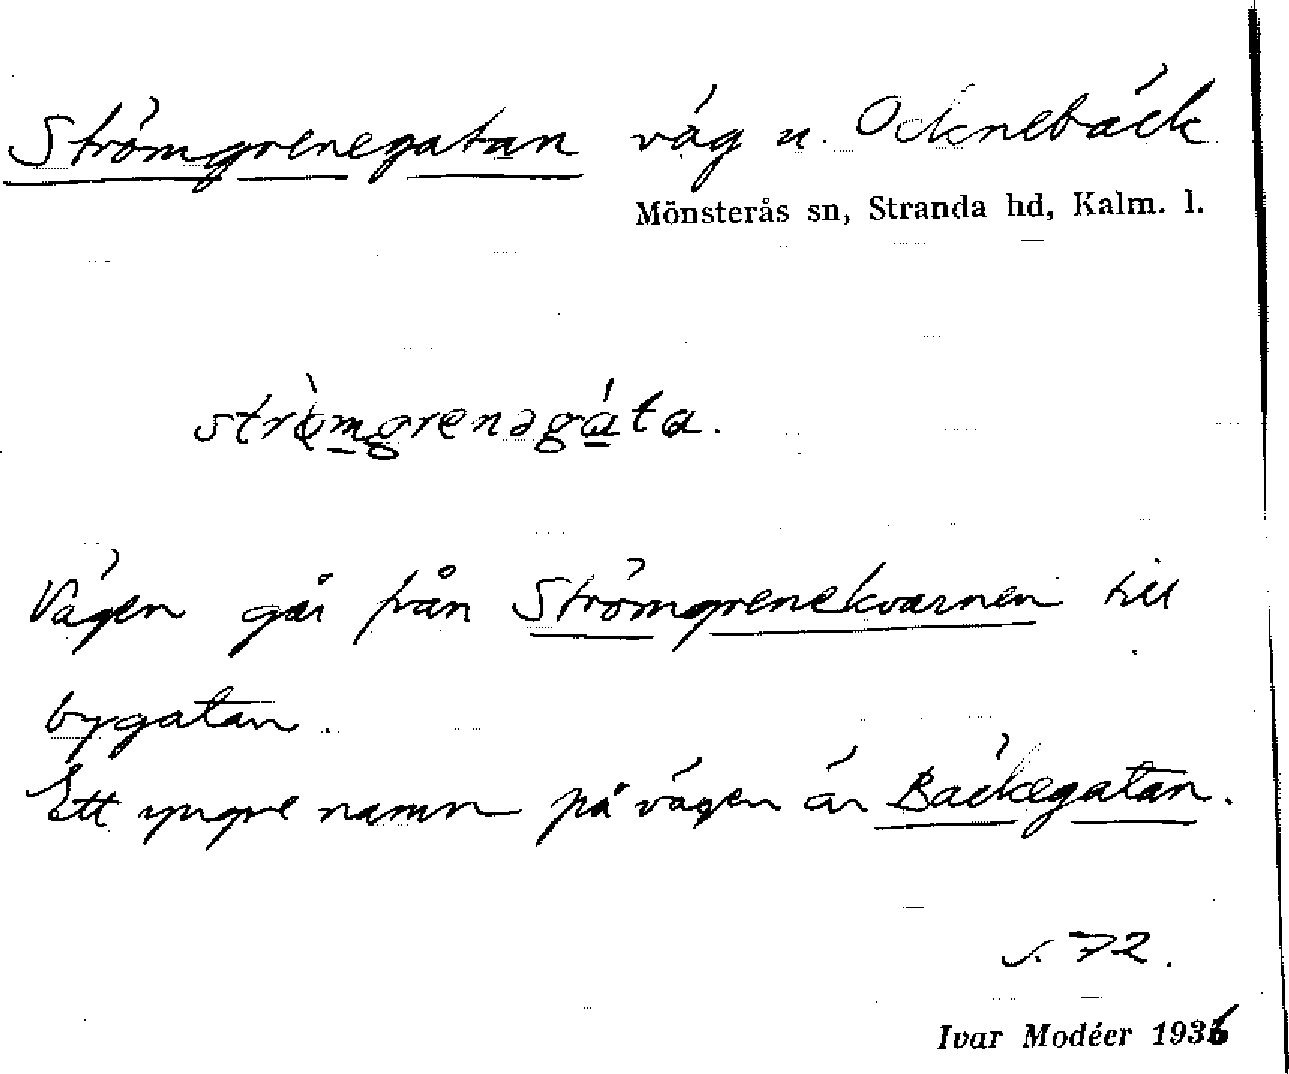 Strömgrenegatan väg u. Ocknebäck
Mönsterås sn, Stranda hd, Kalm. l.
strö̀mgrenəgáta.
Vägen går från Strömgrenekvarnen till
bygatan.
Ett yngre namn på vägen är Bäckegatan.
s. 72.
Ivar Modéer 1936